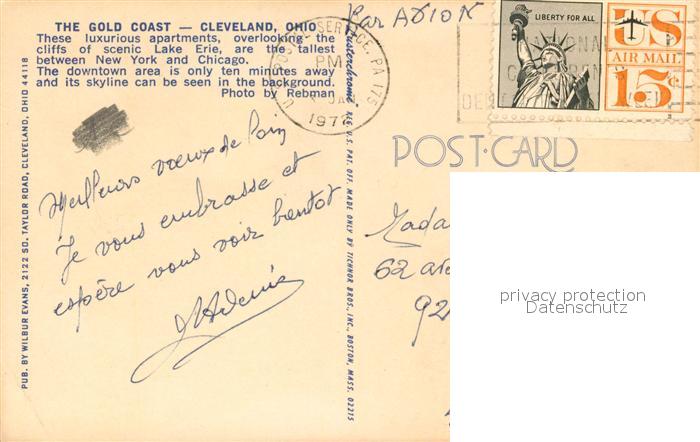 THE GOLD COAST — CLEVELAND, OHIO
These luxurious apartments, overlooking the
cliffs of scenic Lake Erie, are the tallest
between New York and Chicago.
The downtown area is only ten minutes away
and its skyline can be seen in the background.
Photo by Rebman
PUB. BY WILBUR EVANS, 2122 SO. TAYLOR ROAD, CLEVELAND, OHIO 44118
Meilleurs vœux de loin
Je vous embrasse et
espère vous voir bientot
REG. U.S. PAT. OFF. MADE ONLY BY TICHNOR BROS., INC., BOSTON, MASS. 02215
Par AVION
U.S. POSTAL SERVICE, PA 175
PM
197
LIBERTY FOR ALL
US
AIR MAIL
15¢
POST CARD
Mada
62 
92
privacy protection
Datenschutz